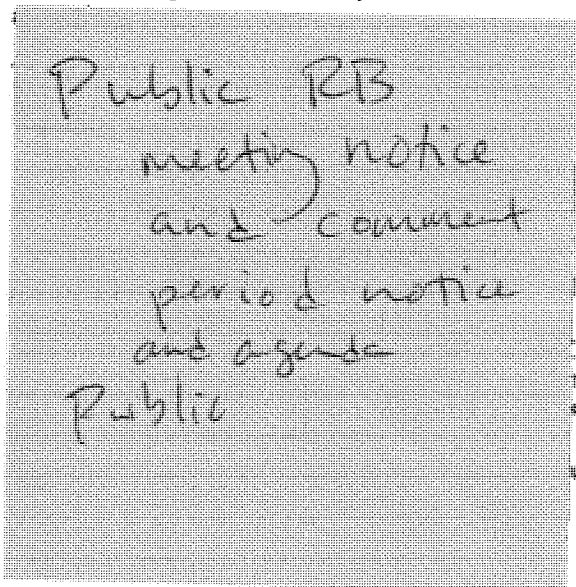 Public RB
meeting notice
and comment
period notice
and agenda
Public